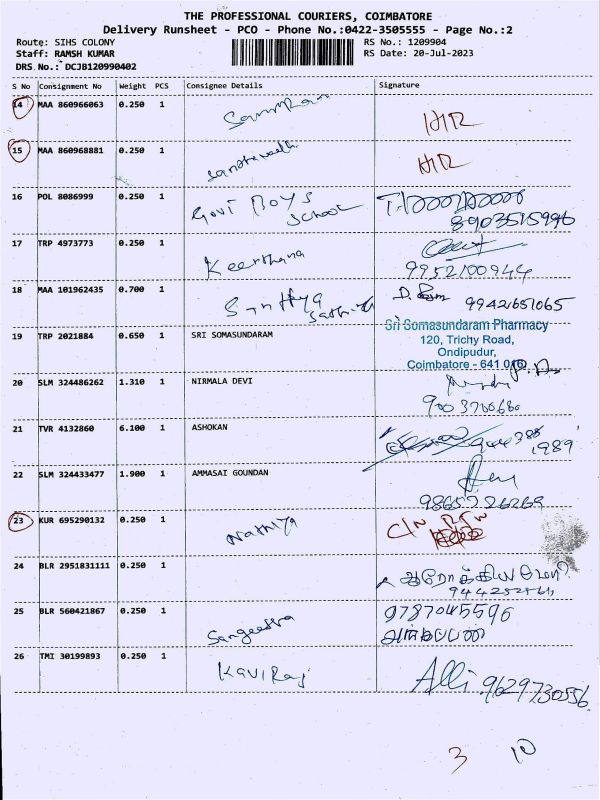 THE PROFESSIONAL COURIERS, COIMBATORE
Delivery Runsheet - PCO - Phone No.:0422-3505555 - Page No.:2
Route: SIHS COLONY RS No.: 1209904
Staff: RAMSH KUMAR RS Date: 20-Jul-2023
DRS No.: DCJB120990402
S No Consignment No Weight PCS Consignee Details Signature
14 MAA 860966063 0.250 1
15 MAA 860968881 0.250 1
16 POL 8086999 0.250 1 Govt Boys School 8903515996
17 TRP 4973773 0.250 1 Keerthana 9952100944
18 MAA 101962435 0.700 1 9942651065
19 TRP 2021884 0.650 1 SRI SOMASUNDARAM
Sri Somasundaram Pharmacy
120, Trichy Road,
Ondipudur,
Coimbatore - 641 016
20 SLM 324486262 1.310 1 NIRMALA DEVI
21 TVR 4132860 6.100 1 ASHOKAN
22 SLM 324433477 1.900 1 AMMASAI GOUNDAN
23 KUR 695290132 0.250 1 Nathiya
24 BLR 2951831111 0.250 1
25 BLR 560421867 0.250 1 Sangeetha 9787045596
26 TMI 30199893 0.250 1 Kaviraj Alli 9629730556
3 10